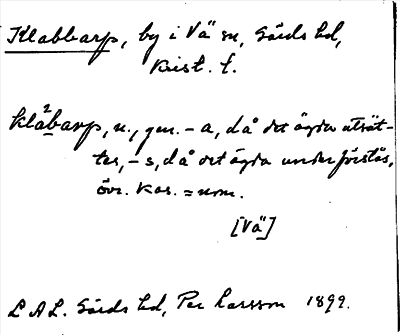 Klabbarp, by i Vä sn, Gärds hd,
Krist. l.
klä²barp, n., gen. -a, då det ägda utsät-
tes, -s, då det ägda underförstås,
övr. kas. = nom.
[Vä]
LAL. Gärds hd, Per Larsson 1899.